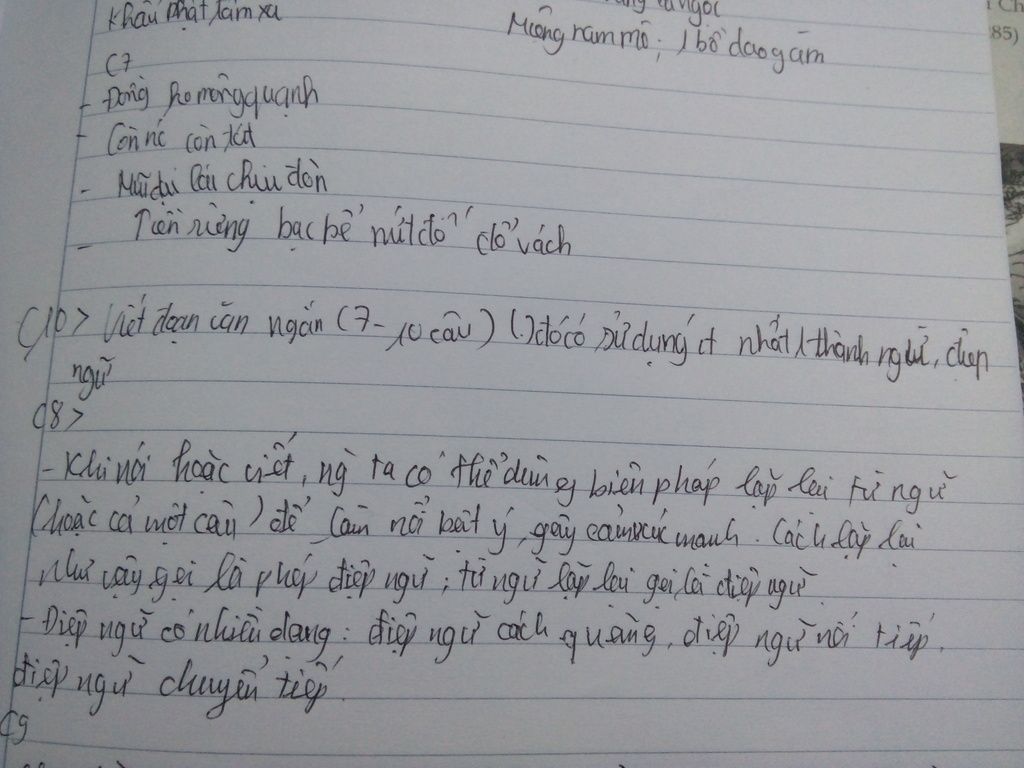 Khẩu phật, tâm xà
Miệng nam mô; 1 bồ dao găm
85)
C7
- Đồng ko mông quạnh
- Còn nc còn tát
- Mũi dại lái chịu đòn
- Tiền rừng bạc bể nứt đố đổ vách
C10> Viết đoạn văn ngắn (7-10 câu) (.) đó có sử dụng ít nhất 1 thành ngữ, điệp
ngữ
C8>
- Khi nói hoặc viết, ng ta có thể dùng biện pháp lặp lại từ ngữ
(hoặc cả một câu) để làm nổi bật ý, gây cảm xúc mạnh. Cách lặp lại
như vậy gọi là phép điệp ngữ; từ ngữ lặp lại gọi là điệp ngữ
- Điệp ngữ có nhiều dạng: điệp ngữ cách quãng, điệp ngữ nối tiếp,
điệp ngữ chuyển tiếp.
C9